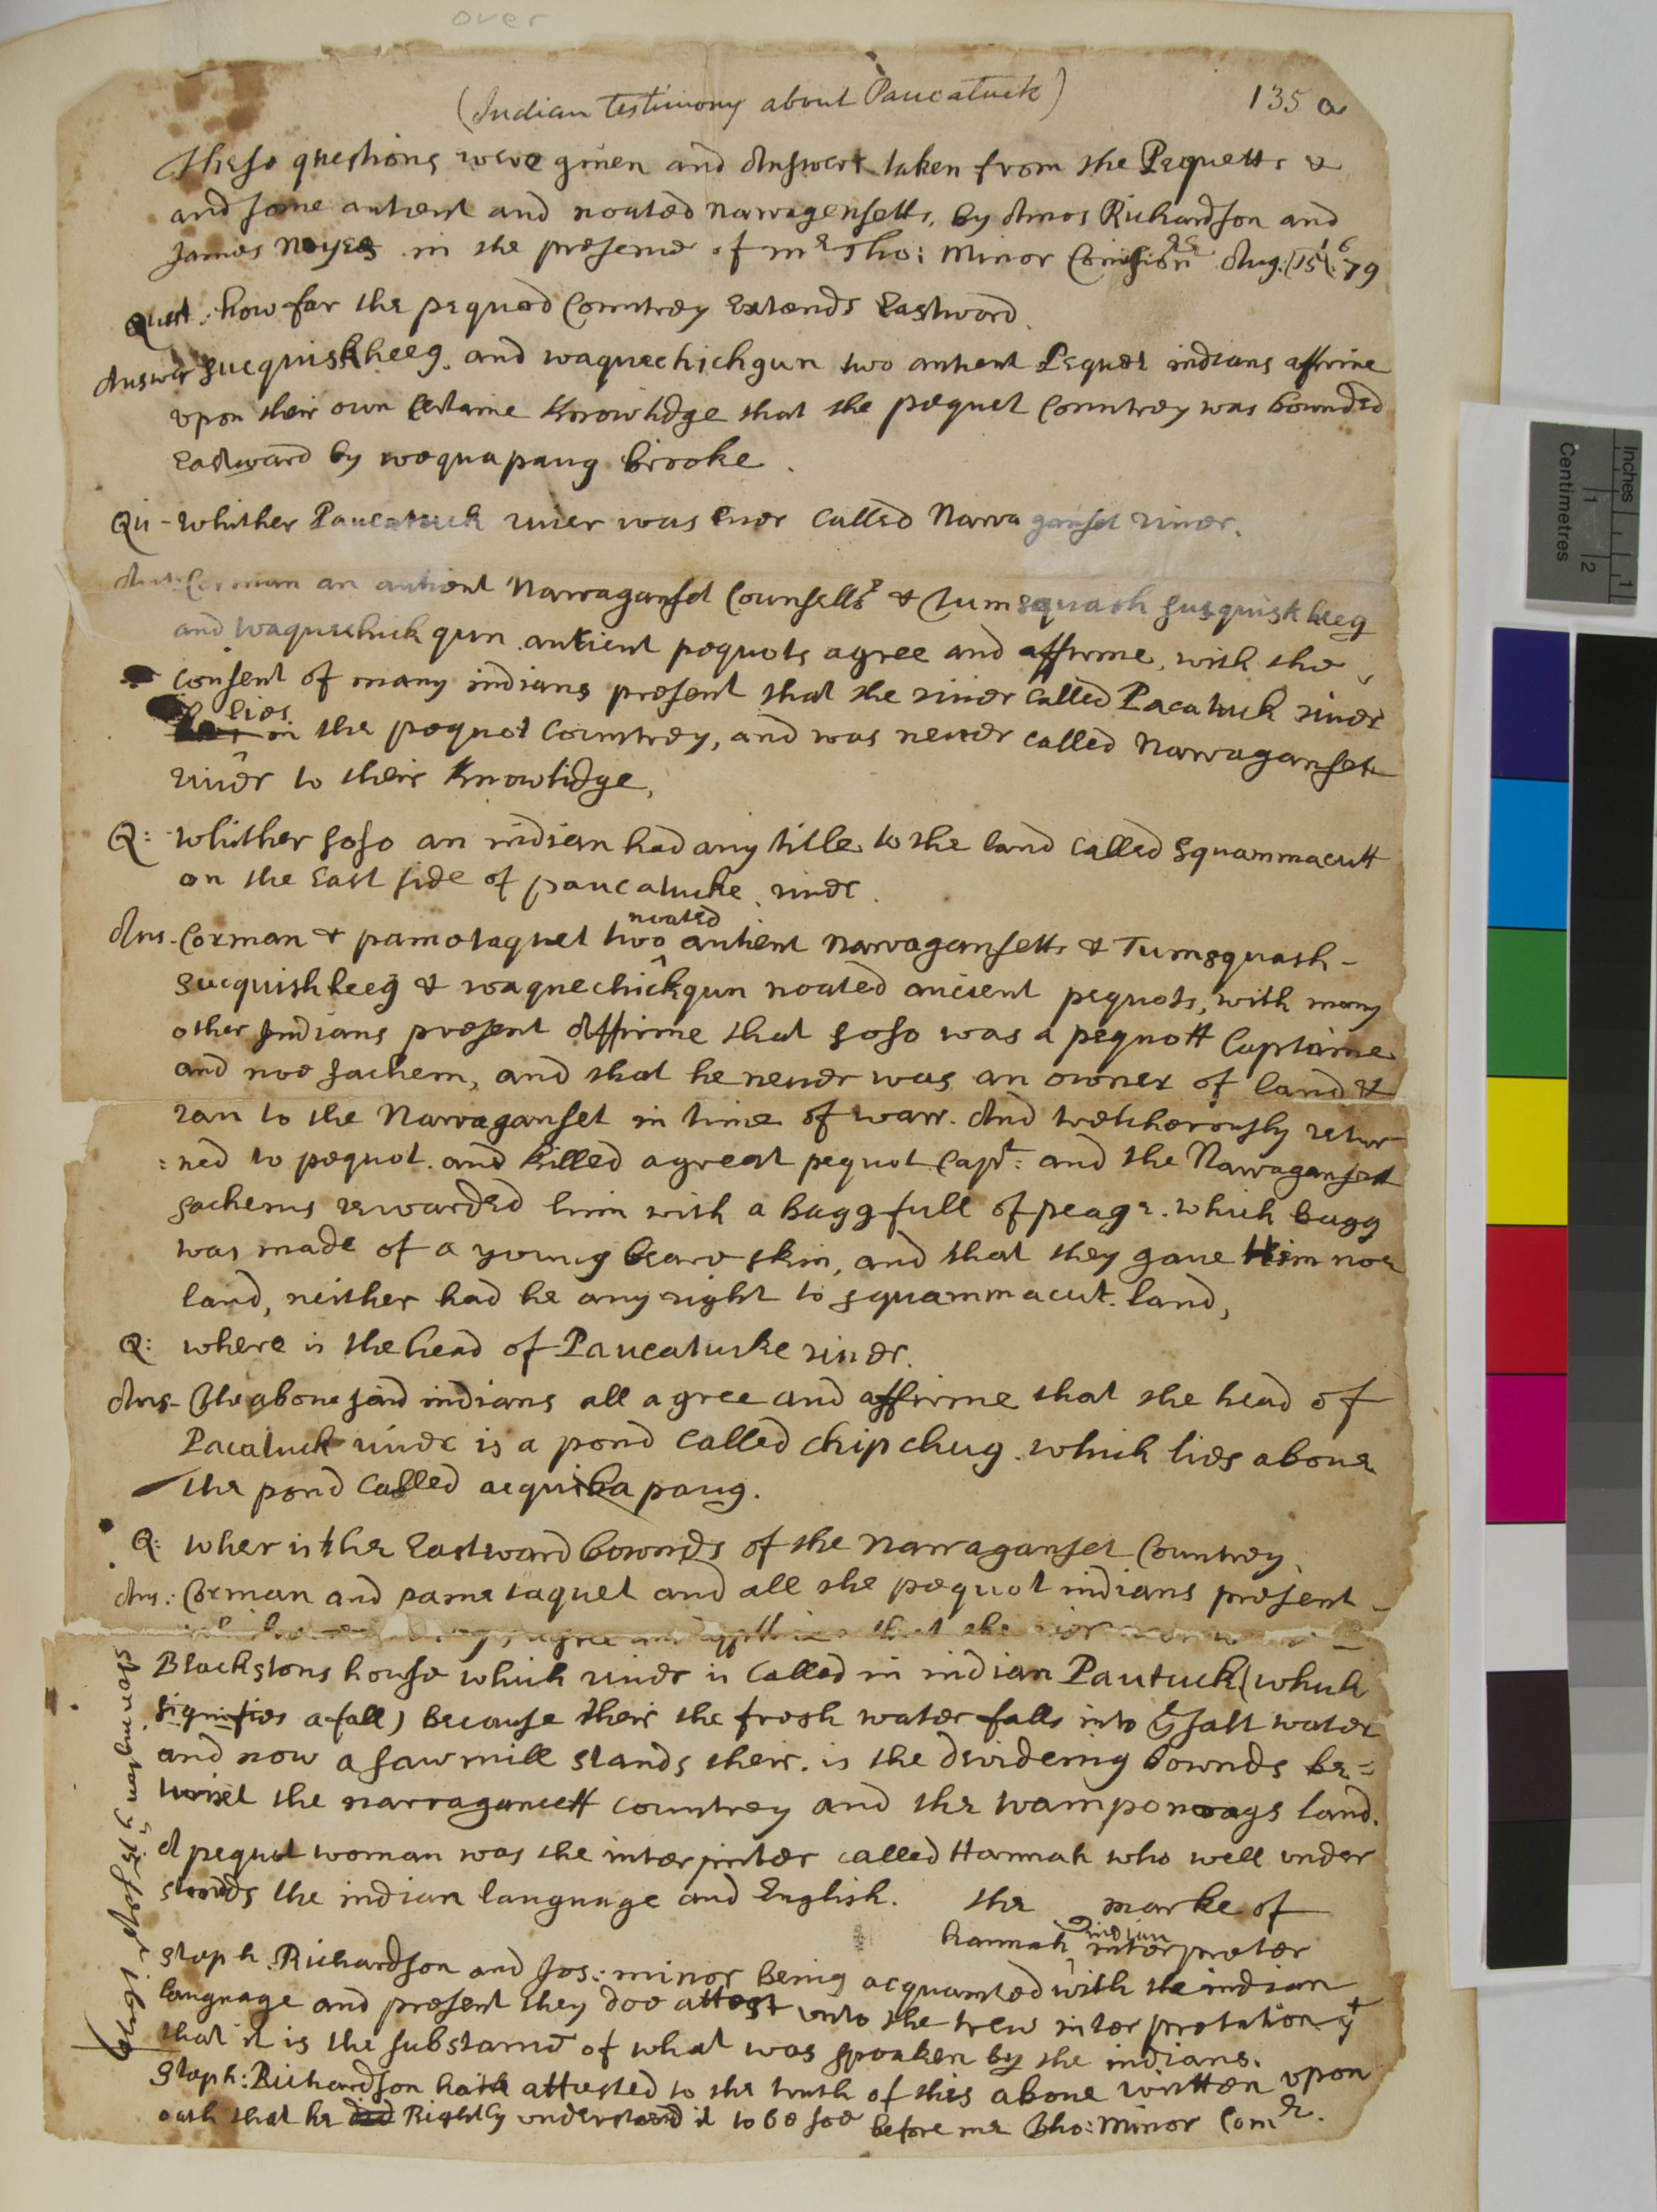 over
(Indian testimony about Paucatuck)
135 a
These questions were giuen and Answers taken from the Pequetts &
and some antient and noated narragensetts, by Amos Richardson and
James Noyes in the presence of mr Tho: Minor Comission Aug: 15 79
Quest: how far the pequod Countrey Extends Eastward.
Answer Sucquiskheeg. and waquechichgun two antient Pequot indians affirme
vpon their own Certaine Knowlidge that the pequet Countrey was bownded
Eastward by woquapaug brooke.
Qu - whither Paucatuck riuer was Euer Called Narraganset riuer.
Ans: Corman an antient Narraganset Counsellor & Tumsquash susquiskheeg
and waquechuckqun antient pequots agree and affirme, with the
consent of many indians present that the riuer called Pacatuck riuer
lies
in the pequot Countrey, and was neuer called Narraganset
riuer to their Knowlidge,
Q: whither soso an indian had any title to the land called Squammacutt
on the East side of paucatucke riuer.
noated
Ans - Corman & pamotaquet two antient narragansetts & Tumsquash -
sucquishkeeg & waquechickqun noated ancient pequots, with many
other Indians present Affirme that soso was a pequott Captaine
and noe sachem, and that he neuer was an owner of land &
ran to the Narraganset in time of warr. And tretcherously retur
:ned to pequot. and Killed a great pequot Capt: and the Narraganset
sachems rewarded him with a bagg full of peage. which bagg
was made of a young beare skin, and that they gaue Him noe
land, neither had he any right to squammacut land,
Q: where is the head of Paucatucke riuer.
Ans - The aboue said indians all agree and affirme that the head of
Pacatuck riuer is a pond Called chipchug. which lies aboue
the pond Called acquibapaug.
Q: wher is the Eastward bownds of the narraganset Countrey.
Ans: Corman and pametaquet and all the pequot indians present -
agree and that the
Blackstons house which riuer is Called in indian Pautuck (which
signifies a fall) because their the fresh water falls into ye salt water
and now a sawmill stands their. is the deuideing bownds be=
twixt the narragancett countrey and the wamponoags land.
A pequot woman was the interpriter called Hannah who well vnder
stands the indian language and English. the marke of
indian
hannah interpreter
Steph: Richardson and Jos: minor being acquainted with the indian
language and present they doe attest vnto the trew interpretation yt
that it is the substance of what was spoaken by the indians.
Steph: Richardson hath attested to the truth of this aboue written vpon
oath that he did Rightly vnderstand it to be soe before me Tho: Minor Comr.
stonington
Inches
Centimetres
1
2
1